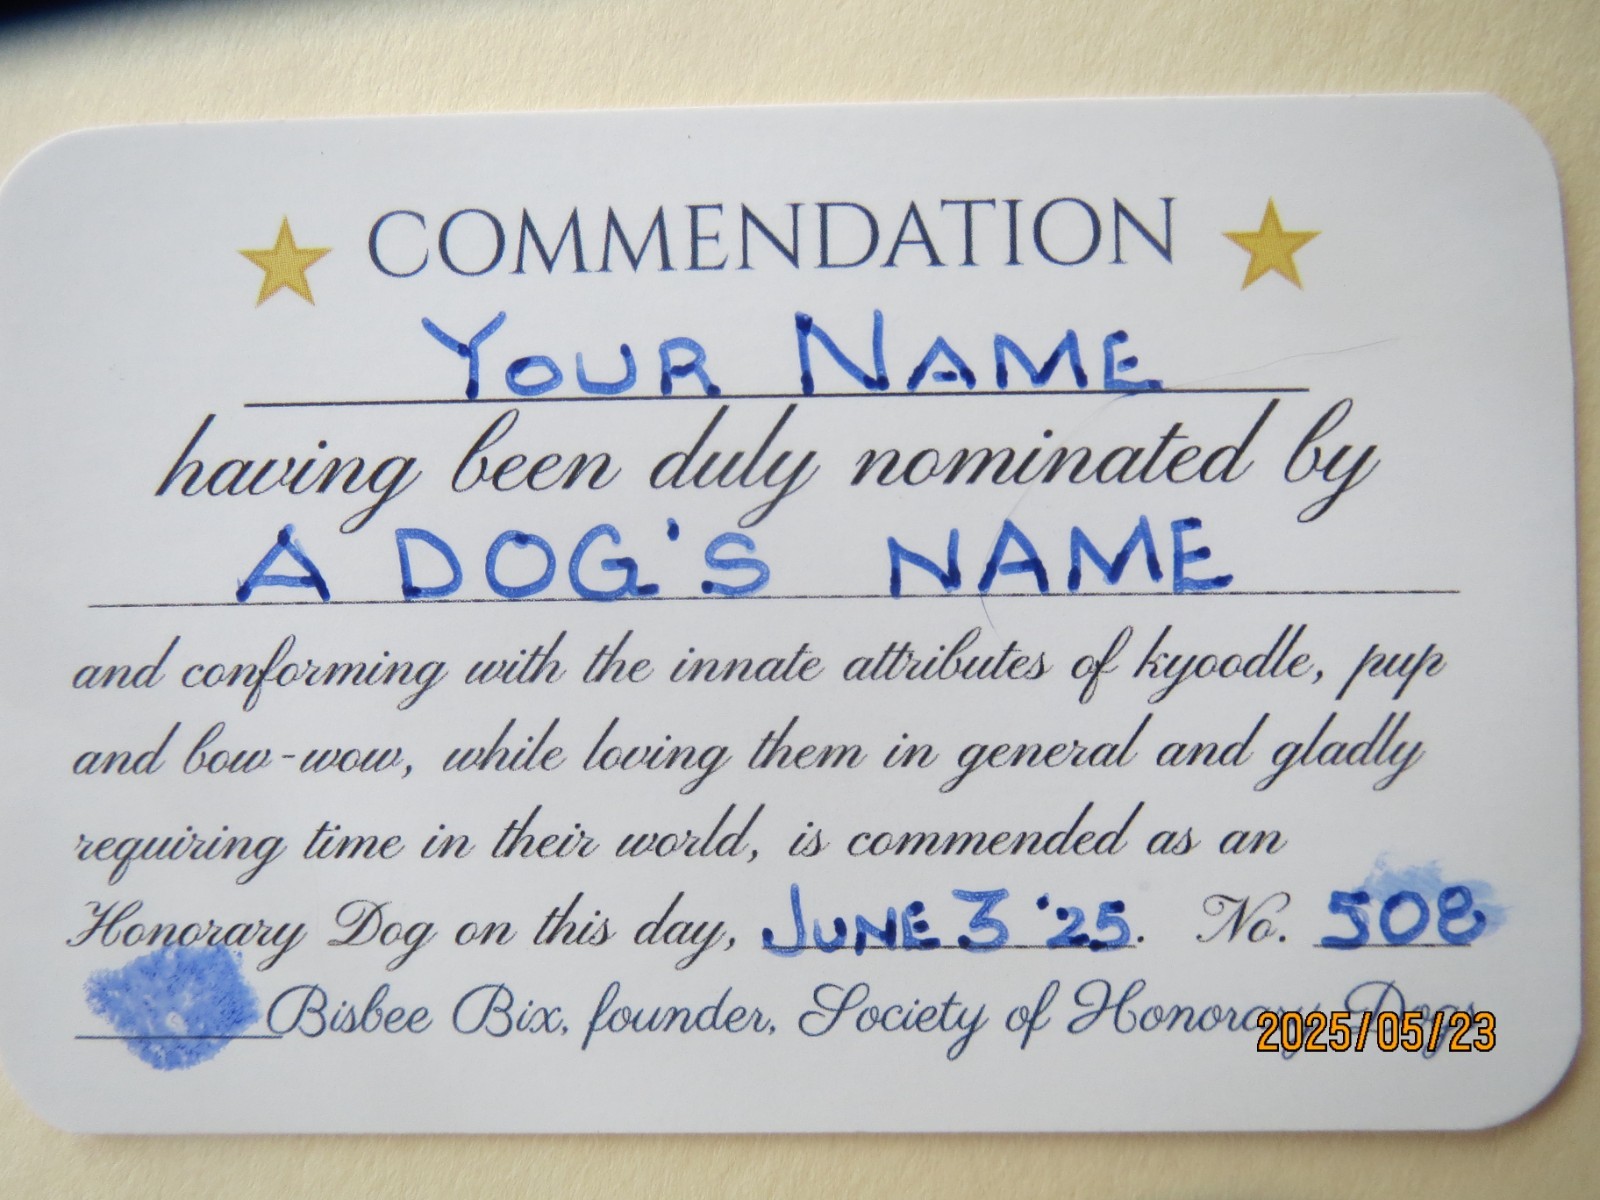 COMMENDATION
YOUR NAME
having been duly nominated by
A DOG'S NAME
and conforming with the innate attributes of kyoodle, pup
and bow-wow, while loving them in general and gladly
requiring time in their world, is commended as an
Honorary Dog on this day, JUNE 3 '25. No. 508
Bisbee Bix, founder, Society of Honorary Dogs
2025/05/23